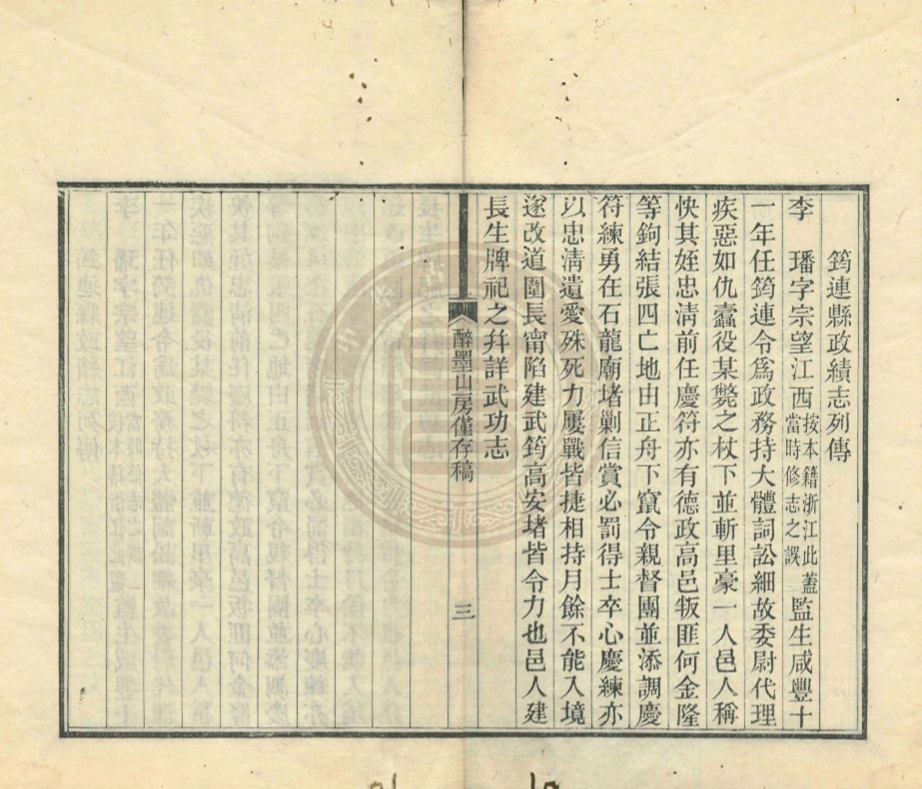 筠連縣政績志列傳
李　璠字宗望江西按本籍浙江此蓋當時修志之誤監生咸豐十
一年任筠連令爲政務持大體詞訟細故委尉代理
疾惡如仇蠧役某斃之杖下並斬里豪一人邑人稱
快其姪忠淸前任慶符亦有德政高邑叛匪何金隆
等鉤結張四亡地由正舟下竄令親督團並添調慶
符練勇在石龍廟堵剿信賞必罰得士卒心慶練亦
以忠淸遺愛殊死力屢戰皆捷相持月餘不能入境
遂改道圍長甯陷建武筠高安堵皆令力也邑人建
長生牌祀之幷詳武功志
醉墨山房僅存稿
三